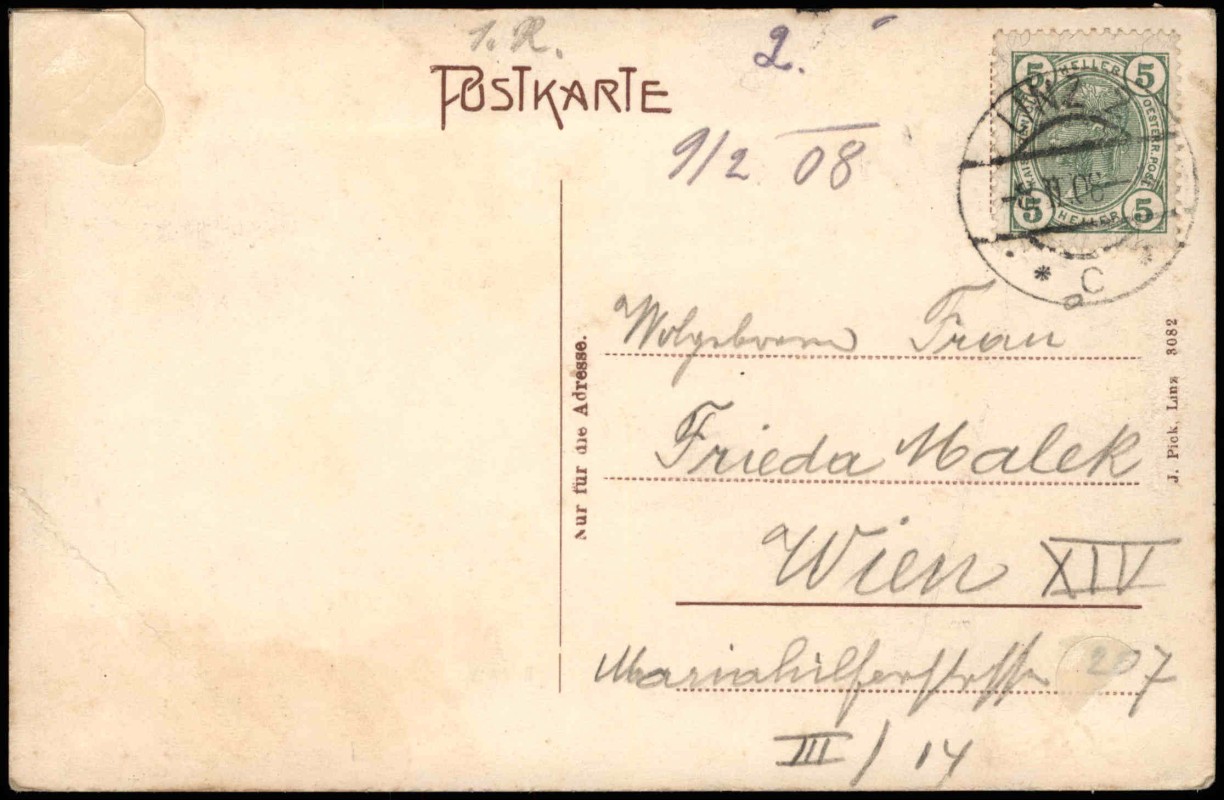 1. R.
2.
POSTKARTE
9/2 08
5 HELLER 5
OESTERR. POST
5 HELLER 5
LINZ 2
II. 08
* C *
a
Wolgeborn Frau
Frieda Malek
Wien XIV
Mariahilferstrsse 207
III / 14
Nur für die Adresse.
J. Pick, Linz 3082